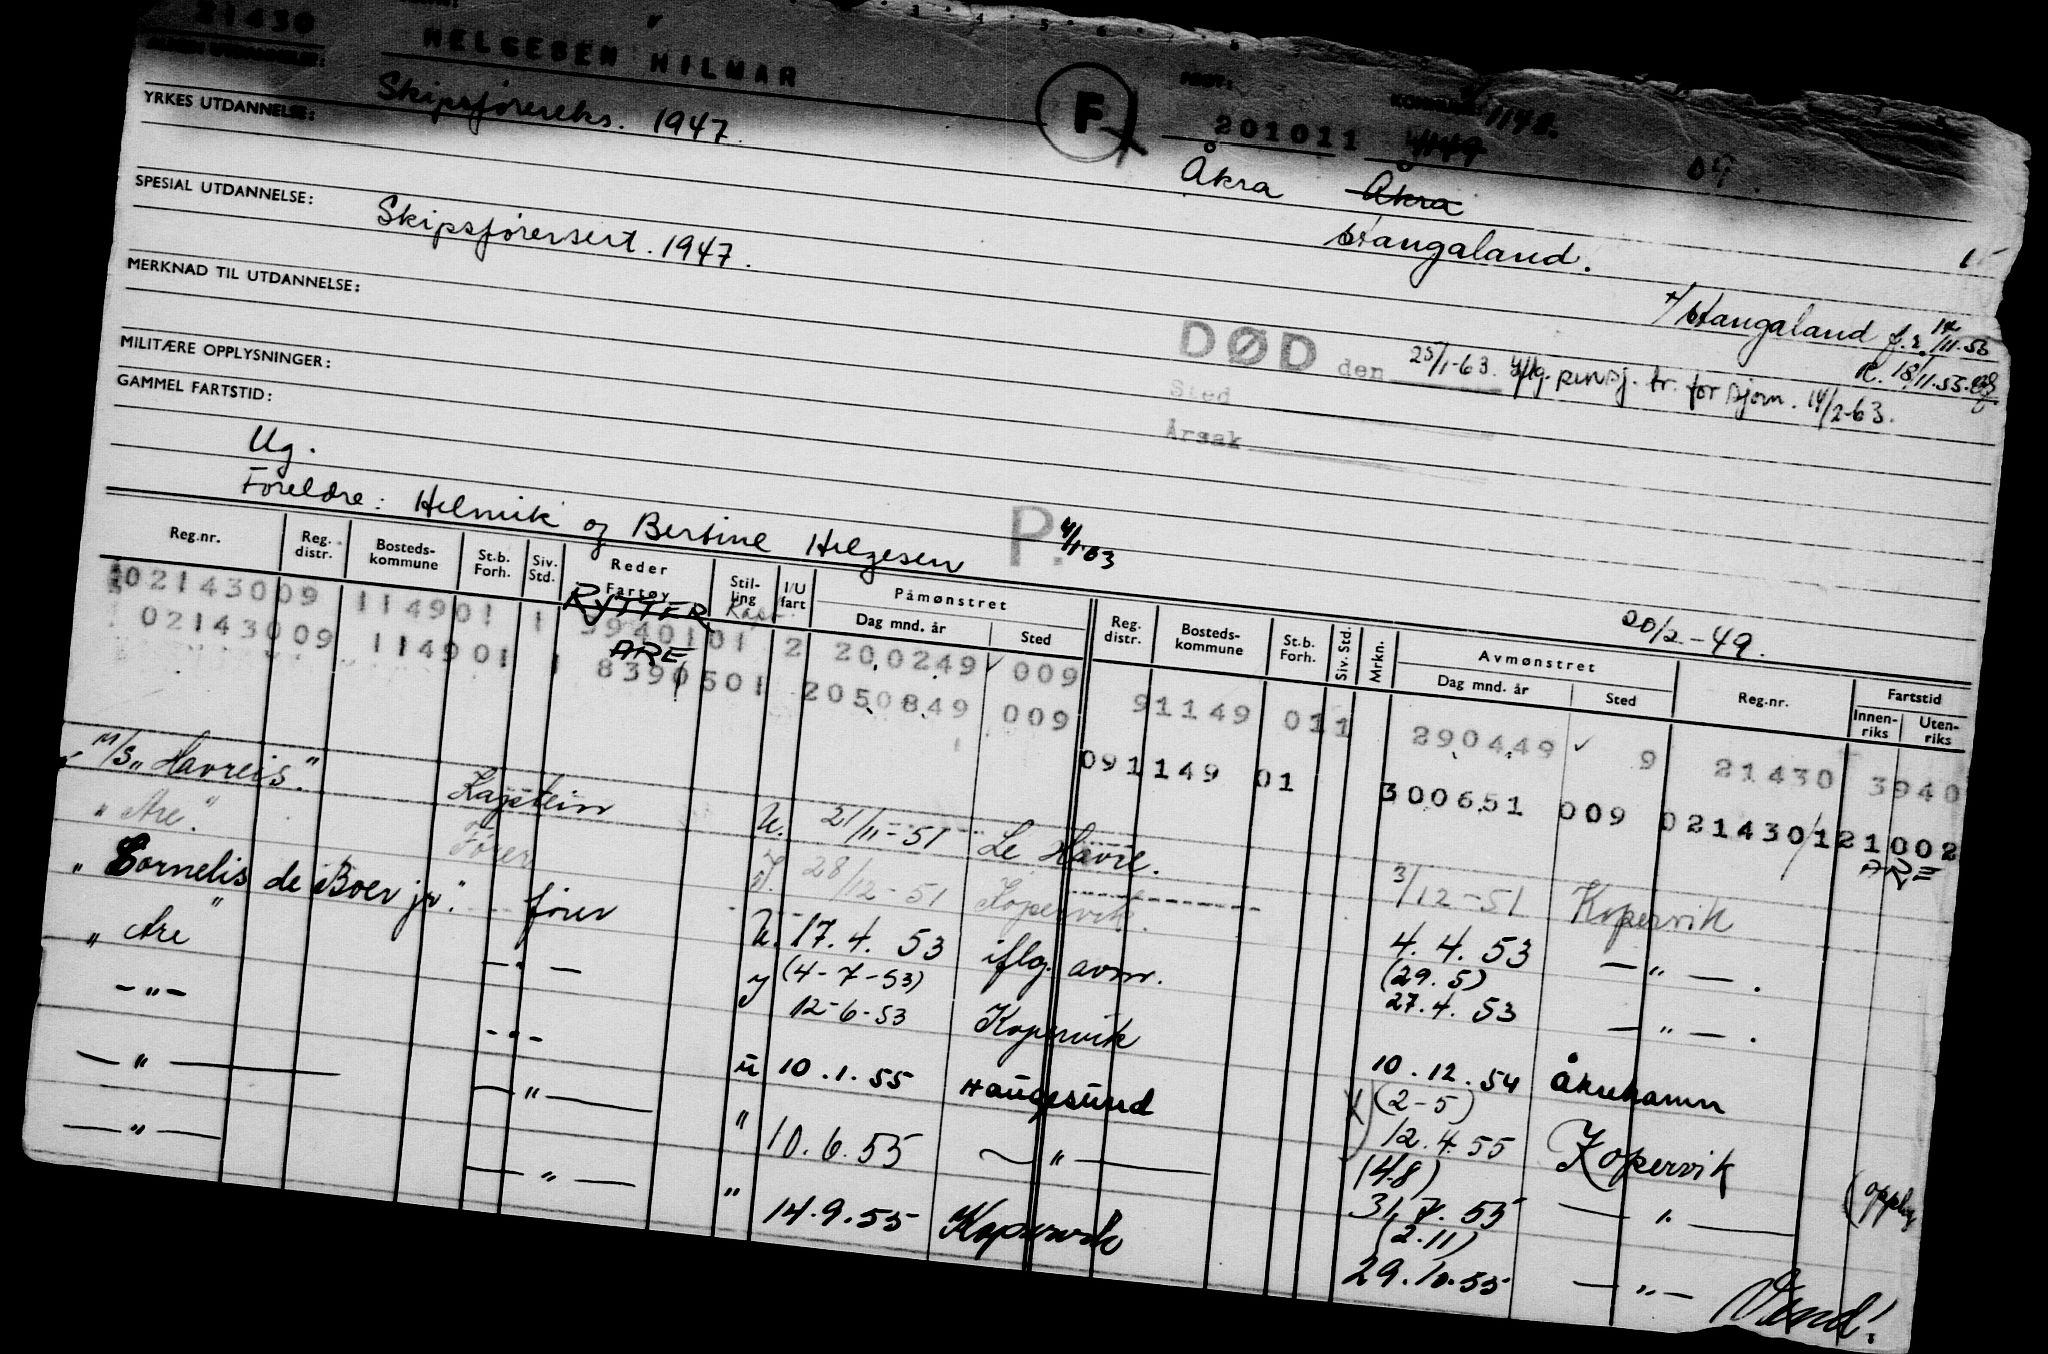 21430 HELGESEN HILMAR F FØDT: KOMMUNE: 1148.
201011 1149 09.
YRKES UTDANNELSE: Skipsførereks. 1947.
Åkra Åkra
Haugaland.
SPESIAL UTDANNELSE: Skipsførersert. 1947.
Haugaland f.r. 14/11.55
R. 18/11.55.
MERKNAD TIL UTDANNELSE:
DØD den 25/1-63. iflg. pensj. tr. for sjøm. 14/2-63.
Sted
Årsak
MILITÆRE OPPLYSNINGER:
GAMMEL FARTSTID:
Ug.
Foreldre: Helmik og Bertine Helgesen P. 4/1-63
20/2-49.
Reg.nr. Reg. distr. Bosteds-kommune St.b. Forh. Siv. Std. Reder Fartøy Stil-ling I/U fart Påmønstret Dag mnd. år Sted Reg. distr. Bosteds-kommune St.b. Forh. Siv. Std. Mrkn. Avmønstret Dag mnd. år Sted Reg.nr. Fartstid Innen-riks Uten-riks
02143009 114901 1 RYTTER 3940101 2 200249 009 91149 011 290449 9 21430 3940
02143009 114901 1 ARE 8390501 2050849 009 091149 01 300651 009 02143012 1002
ARE
M/S „Havreis". Kaptein U. 21/11-51 Le Havre. 3/12-51 Kopervik
„ Are". Fører 28/12-51 Kopervik. 4.4.53 — " — .
„ Cornelis de Boer jr". fører U. 17.4.53 iflg. avm. (29.5) 27.4.53 — " — .
„ Are" — " — (4-7-53) 12-6-53 Kopervik 10.12.54 Åkrehamn
— " — — " — u 10.1.55 Haugesund (2-5) 12.4.55 Kopervik
— " — — " — " 10.6.55 — " — (4.8) 31.7.55 — " —
— " — — " — " 14.9.55 Kopervik (2.11) 29.10.55 — " —
Vend!